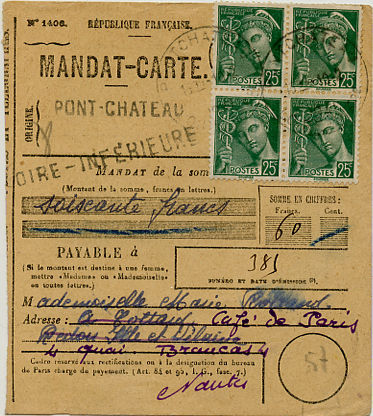 N° 1406.
RÉPUBLIQUE FRANÇAISE.
MANDAT-CARTE.
ORIGINE.
PONT-CHATEAU
LOIRE-INFÉRIEURE
RÉPUBLIQUE FRANÇAISE
POSTES 25c
RÉPUBLIQUE FRANÇAISE
POSTES 25c
RÉPUBLIQUE FRANÇAISE
POSTES 25c
RÉPUBLIQUE FRANÇAISE
POSTES 25c
MANDAT de la som
(Montant de la somme, francs en lettres.)
soixante francs
SOMME EN CHIFFRES:
Francs. Cent.
60
PAYABLE à
(Si le montant est destiné à une femme,
mettre «Madame» ou «Mademoiselle»
en toutes lettres.)
383
NUMÉRO ET DATE D'ÉMISSION
Mademoiselle Marie Rolland
Adresse: Café de Paris
Ille et Vilaine
4 quai Brancas
Cadre réservé aux rectifications ou à la désignation du bureau
de Paris chargé du payement. (Art. 84 et 95, I. G., fasc. 7.)
Nantes
57